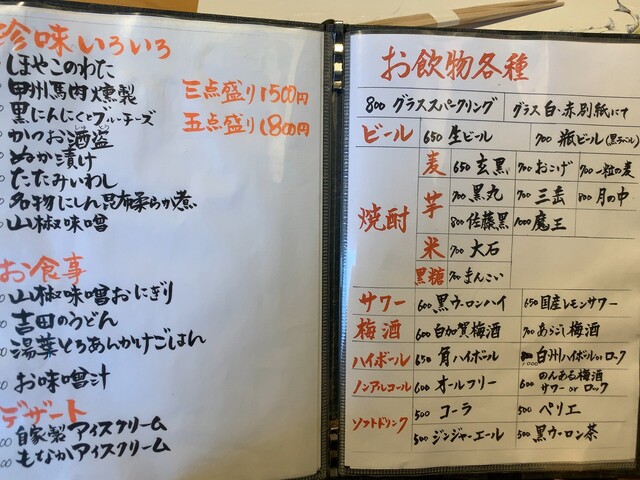 珍味いろいろ
ほやこのわた
甲州馬肉燻製
三点盛り1500円
黒にんにくとブルーチーズ
五点盛り1800円
かつお酒盗
ぬか漬け
たたみいわし
名物にしん昆布柔らか煮
山椒味噌
お食事
山椒味噌おにぎり
吉田のうどん
湯葉とろあんかけごはん
お味噌汁
デザート
自家製アイスクリーム
もなかアイスクリーム
お飲物各種
800 グラススパークリング グラス白・赤別紙にて
ビール 650 生ビール 700 瓶ビール(黒ラベル)
焼酎
麦 650 玄黒 700 おこげ 700 一粒の麦
芋 700 黒丸 700 三岳 800 月の中
800 佐藤黒 1000 魔王
米 700 大石
黒糖 700 まんこい
サワー 600 黒ウーロンハイ 650 国産レモンサワー
梅酒 600 白加賀梅酒 700 あらごし梅酒
ハイボール 650 角ハイボール 白州ハイボールorロック
ノンアルコール 600 オールフリー 600 のんある梅酒サワーorロック
ソフトドリンク
500 コーラ 500 ペリエ
500 ジンジャーエール 500 黒ウーロン茶